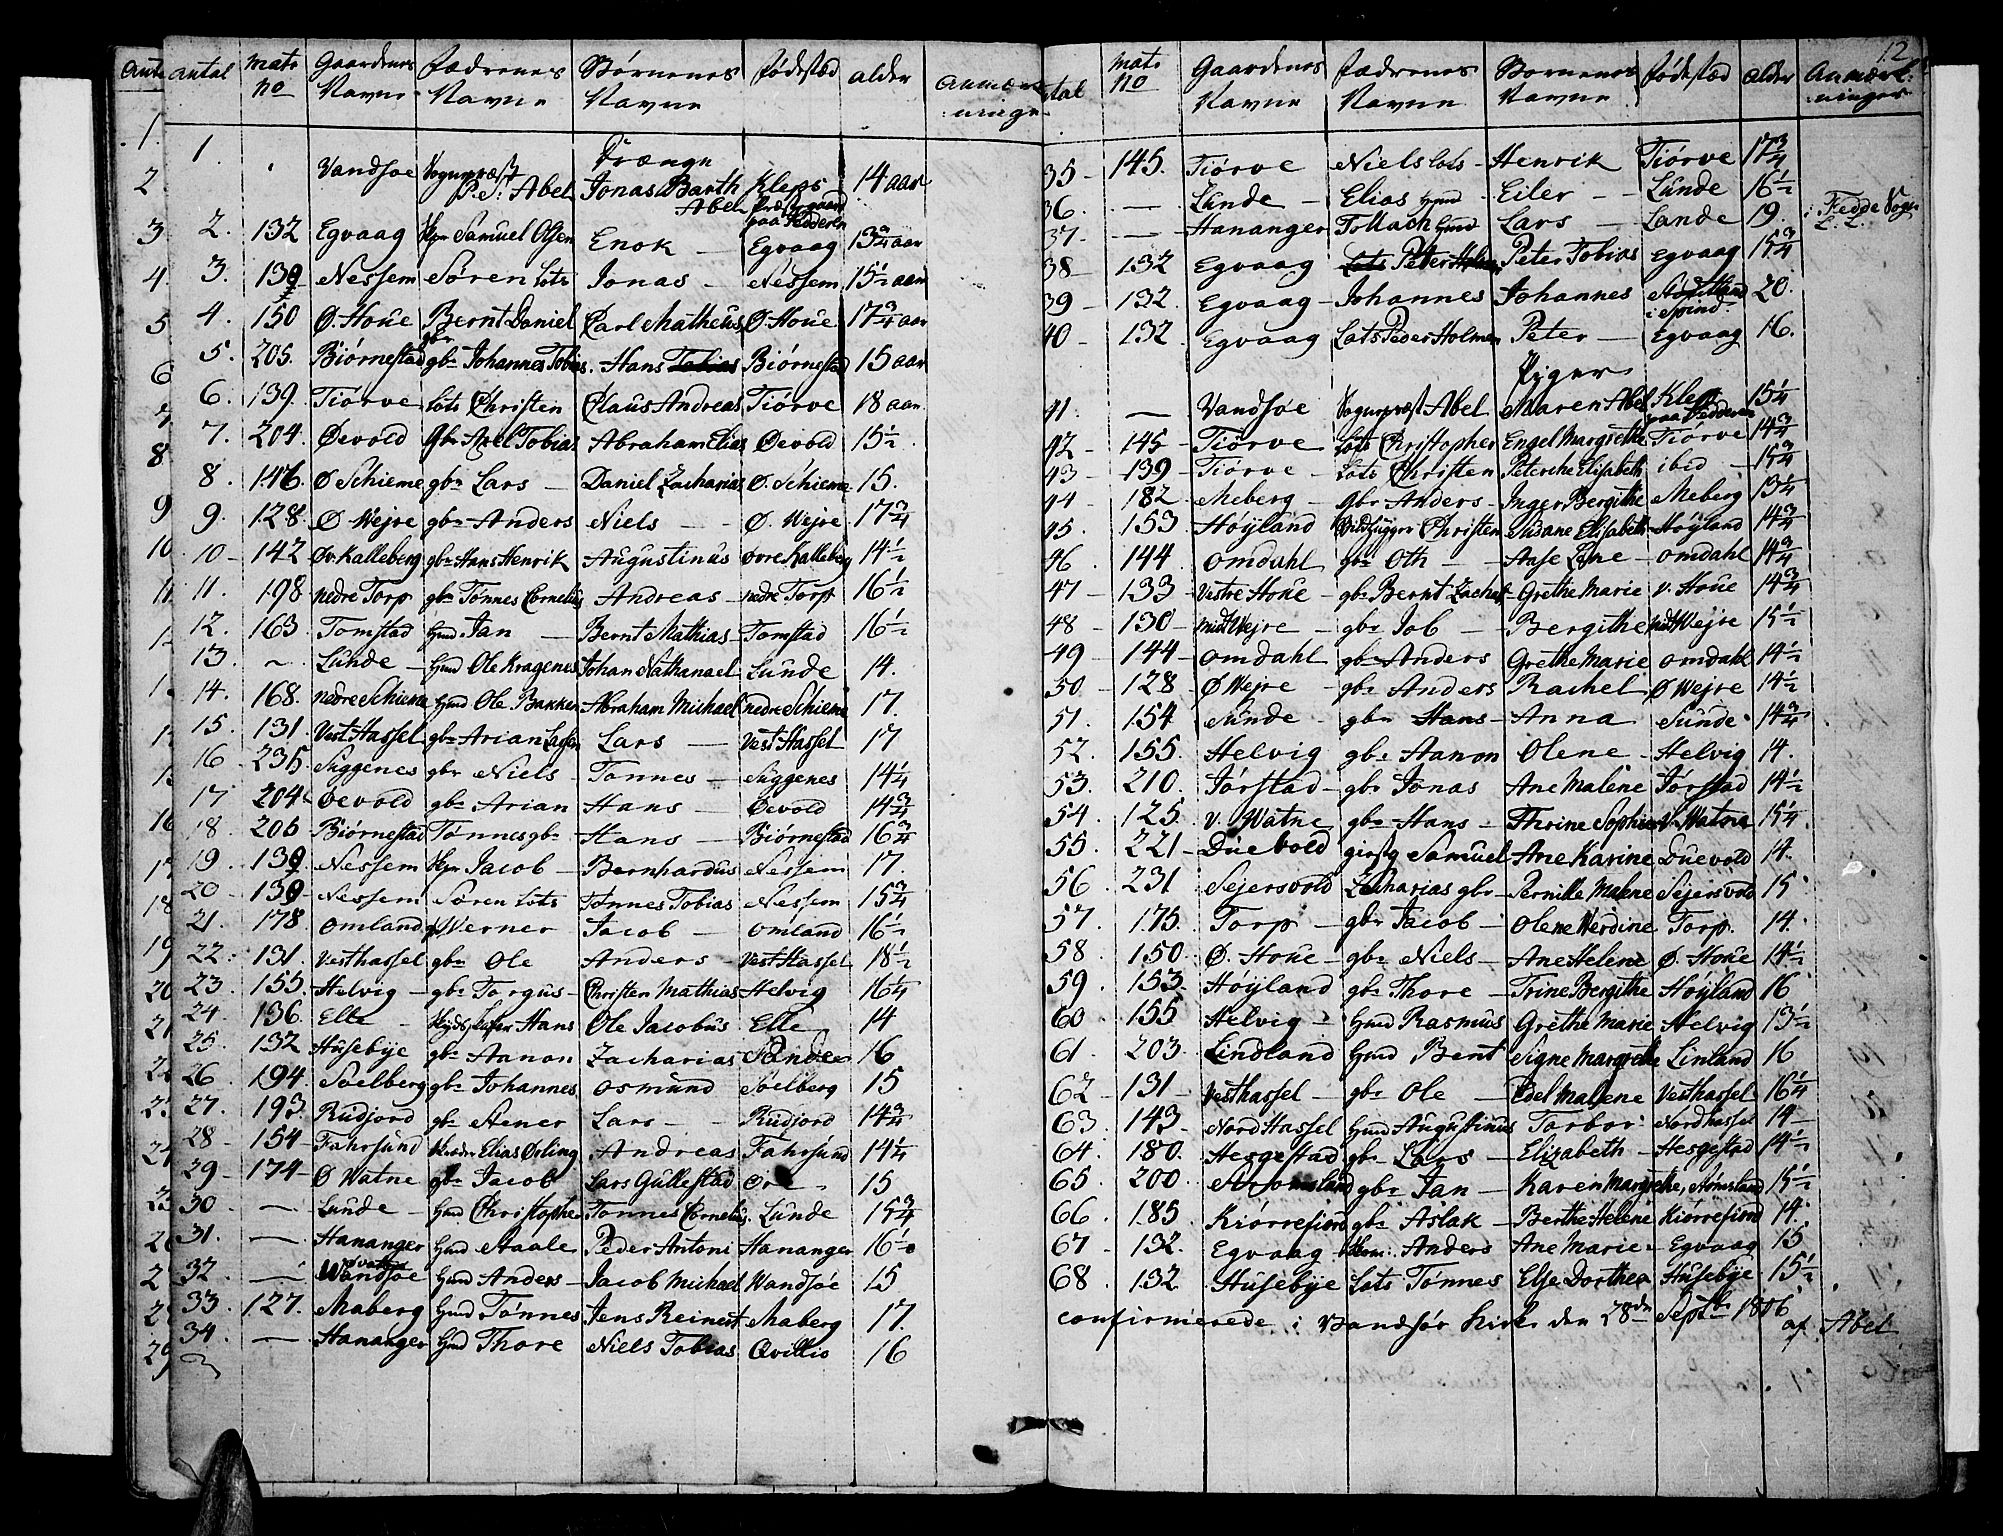 antal mats no Gaardenes Navne Fædrenes Navne Børnenes Navne fødestæd alder anmærkninger
Drænge
1. Vandsøe Sognepræst P.C. Abel Jonas Barth Abel Kleps Præstegaard paa Jedderen 14 aar
2. 132 Egvaag Skpr Samuel Olsen Enok Egvaag 13¾ aar
3. 139 Nessem Søren Lots Jonas Nessem 15½ aar
4. 150 Ø. Houe Bernt Daniel gbr Carl Matheus Ø. Houe 17¾ aar
5. 205. Biørnestad gbr Johannes Tobias. Hans Tobias Biørnestad 15 aar
6. 139. Tiørve Lots Christen Claus Andreas Tiørve 18 aar.
7. 204. Øevold Gbr Axel Tobias Abraham Elias Øevold 15½
8. 146. Ø Schieme gbr Lars Daniel Zacharias Ø. Schieme 15.
9. 128. Ø Wejre gbr Anders Niels Ø. Wejre 17¾
10 142 Øv. Kalleberg gbr Hans Henrik Augustinus øvre Kalleberg 14½
11. 198 nedre Torp gbr Tønnes Cornelius Andreas nedre Torp 16½
12. 163 Tomstad Hmd Jan Bernt Mathias Tomstad 16½
13. Lunde Hmd Ole Kragenes Johan Nathanael Lunde 14.
14. 168. nedre Schieme Hmd Ole Bakken Abraham Michael nedre Schieme 17.
15. 131. Vest Hassel gbr Arian Lassen Lars Vest Hassel 17
16 235 Siggenes gbr Niels Tønnes Siggenes 14¼
17 204 Øevold gbr Arian Hans Øevold 14¾
18. 205 Biørnestad Tønnes gbr Hans Biørnestad 16¾
19. 139. Nessem Skpr Jacob Bernhardus Nessem 17.
20 139 Nessem Søren Lots Tønnes Tobias Nessem 15¾
21. 178. Omland Werner Jacob Omland 16½
22. 131. Vesthassel gbr Ole Anders Vest Hassel 18½
23. 155. Helvig gbr Torgus Christen Mathias Helvig 16¼
24. 136. Elle Hans Ole Jacobus Elle 14
25. 132 Husebye gbr Aanon Zacharias Sande 16
26. 194. Soelberg gbr Johannes Osmund Soelberg 15
27. 193. Rudjord gbr Stener Lars Rudjord 14¾
28 154 Fahrsund Elias Ørling Andreas Fahrsund 14¼
29 174 Ø Watne gbr Jacob Lars Gullestad Øre 15
30 Lunde Hmd Christopher Tønnes Cornelius. Lunde 15¾
31. Hananger Hmd Staale Peder Antoni Hananger 16½
32. Wandsøe Hmd Anders Jacob Michael Wandsøe 15
33. 127. Maberg Hmd Tønnes Jens Reinert Maberg 17.
34. Hananger Hmd Thore Niels Tobias Qvillio 16
12.
antal mats no Gaardenes Navne Fædrenes Navne Bornenes Navne fødestæd alder Anmærkninger
35 145. Tiørve Niels Lots Henrik Tiørve 17¾
36. Lunde Elias Hmd Eiler Lunde 16½
37 Hananger Tollach Hmd Lars Lande 19. i Fedde Sogn
38 132 Egvaag Lots Peder Holmen Peter Tobias Egvaag 15¾
39 132. Egvaag Johannes Johannes i Spind. 20.
40 132 Egvaag Lots Peder Holmen Peter Egvaag 16.
Piger
41 Vandsøe Sognepræst Abel Maren Abel Klep paa Jedderen 15¼
42 145 Tiørve Lots Christopher Engel Margrethe Tiørve 14¾
43 139 Tiørve Lots Christen Petersche Elisabeth ibid 15¾
44 182 Meberg gbr Anders Inger Bergithe Meberg 13¼
45 153 Høyland Christen Susane Elisabeth Høyland 14¾
46. 144 Omdahl gbr Oth Aase Lene Omdahl 14¾
47 133 Vestre Houe gbr Bernt Zachs Grethe Marie v. Houe 14¾
48 130 midt Wejre gbr Job Bergithe midt Wejre 15½
49 144 Omdahl gbr Anders Grethe Marie Omdahl 14½
50 128 Ø Wejre gbr Anders Rachel Ø Wejre 14½
51. 154 Sunde gbr Hans Anna Sunde 14¾
52. 155 Helvig gbr Aanon Olene Helvig 14.
53. 210. Jørstad gbr Jonas Ane Malene Jørstad 14½
54. 125 v. Watne gbr Hans Thrine Sophie v. Watne 15¼
55. 221 Duevold Samuel Ane Karine Duevold 14.
56. 231 Sejersvold Zacharias gbr Pernille Malene Sejersvold 15
57. 175. Torp gbr Jacob Olene Werdine Torp. 14.
58. 150. Ø. Houe gbr Niels Ane Helene Ø. Houe 14½
59. 153. Høyland gbr Thore Trine Bergithe Høyland 16
60. 155 Helvig Hmd Rasmus Grethe Marie Helvig 13½
61. 203. Lindland Hmd Bent Signe Margrethe Linland 16
62 131 Vesthassel gbr Ole Edel Malene Vesthassel 16¼
63. 143. Nord Hassel Hmd Augustinus Torbor Nordhassel 14
64. 180. Hesgestad gbr Lars Elizabeth Hesgestad 14½
65. 200. Stromsland gbr Jan Karen Margrethe, Strømsland 15½
66. 185. Kiørrefiord gbr Aslak Berthe Helene Kiørrefiord 14.
67 132. Egvaag Anders Ane Marie Egvaag 15
68. 132 Husebye Lots Tønnes Else Dorthea Husebye 15½
confirmerede i Vandsøe Kirke den 28de Septbr 1806 af Abel